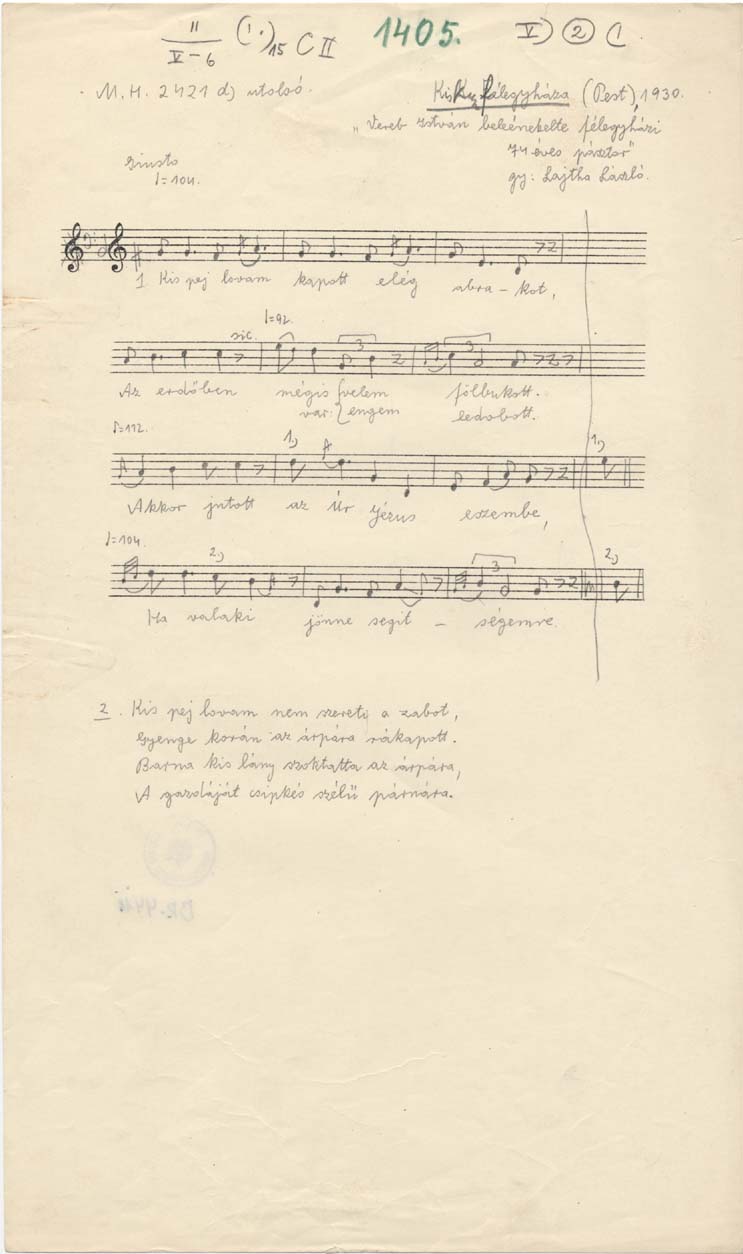 II
V-6 (1.)15 C II 1405. V) 2 (1
M. H. 2421 d) utolsó. KisKunfélegyháza (Pest), 1930.
"Vereb István beleénekelte félegyházi
74 éves pásztor"
gy: Lajtha László.
Giusto
=104.
1. Kis pej lovam kapott elég abra-kot,
=92.
sic. 3 3
Az erdőben mégis velem fölbukott.
var: engem ledobott.
=112.
1.) 1.)
Akkor jutott az Úr Jézus eszembe,
=104.
2.) 3 2.)
Ha valaki jönne segit - ségemre.
2. Kis pej lovam nem szereti a zabot,
Gyenge korán az árpára rákapott.
Barna kis lány szoktatta az árpára,
A gazdáját csipkés szélü párnára.